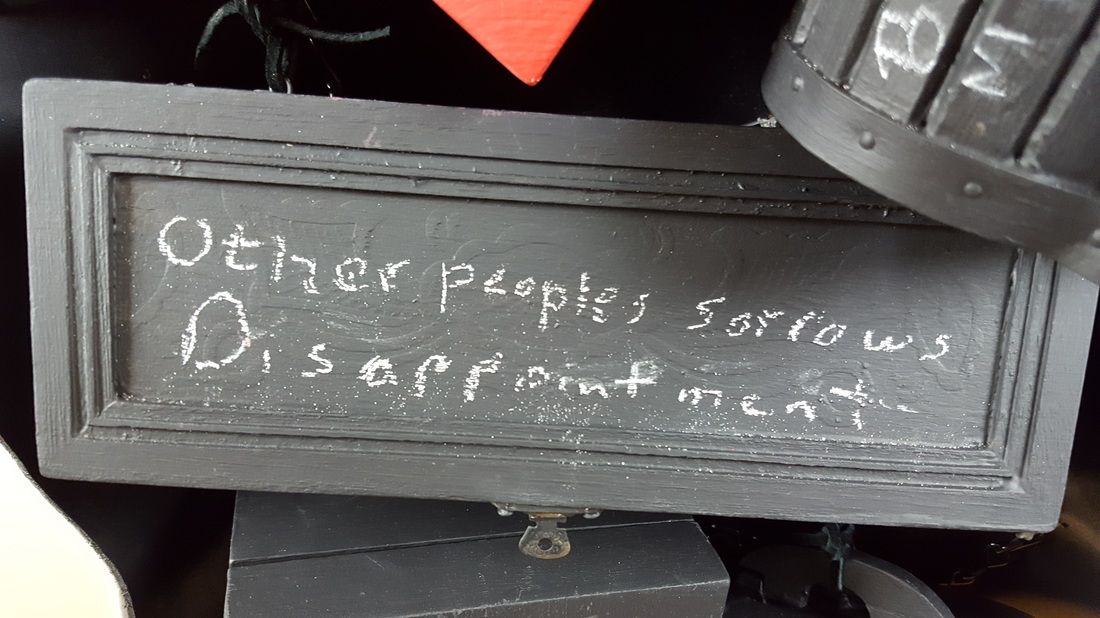 Other peoples sorrows
Disappointment
B
M